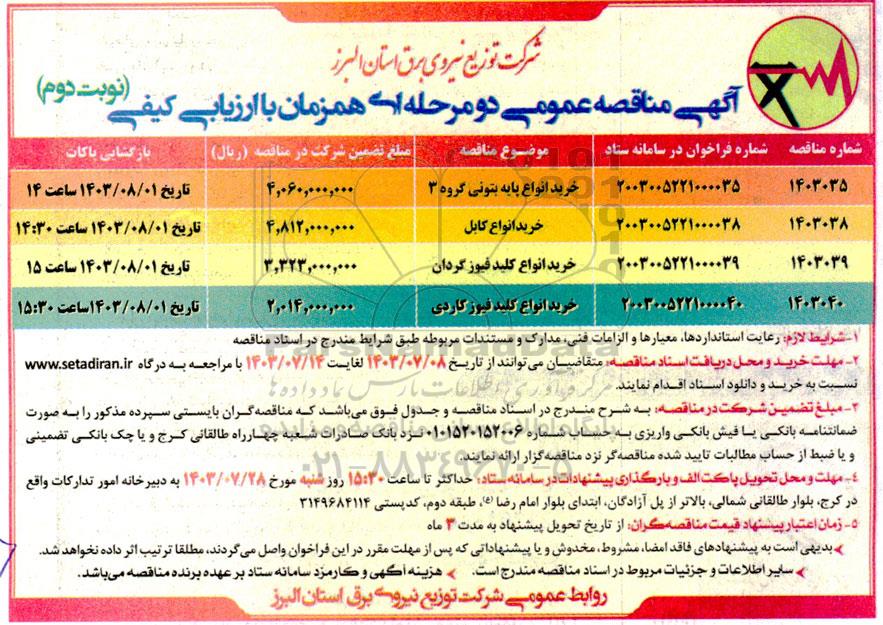 شرکت توزیع نیروی برق استان البرز
آگهی مناقصه عمومی دو مرحله ای همزمان با ارزیابی کیفی (نوبت دوم)
شماره مناقصه شماره فراخوان در سامانه ستاد موضوع مناقصه مبلغ تضمین شرکت در مناقصه (ریال) بازگشایی پاکات
۱۴۰۳۰۳۵ ۲۰۰۳۰۰۵۲۲۱۰۰۰۰۳۵ خرید انواع پایه بتونی گروه ۳ ۴,۰۶۰,۰۰۰,۰۰۰ تاریخ ۱۴۰۳/۰۸/۰۱ ساعت ۱۴
۱۴۰۳۰۳۸ ۲۰۰۳۰۰۵۲۲۱۰۰۰۰۳۸ خرید انواع کابل ۴,۸۱۲,۰۰۰,۰۰۰ تاریخ ۱۴۰۳/۰۸/۰۱ ساعت ۱۴:۳۰
۱۴۰۳۰۳۹ ۲۰۰۳۰۰۵۲۲۱۰۰۰۰۳۹ خرید انواع کلید فیوز گردان ۳,۳۲۳,۰۰۰,۰۰۰ تاریخ ۱۴۰۳/۰۸/۰۱ ساعت ۱۵
۱۴۰۳۰۴۰ ۲۰۰۳۰۰۵۲۲۱۰۰۰۰۴۰ خرید انواع کلید فیوز کاردی ۲,۰۱۴,۰۰۰,۰۰۰ تاریخ ۱۴۰۳/۰۸/۰۱ ساعت ۱۵:۳۰
۱-شرایط لازم: رعایت استانداردها، معیارها و الزامات فنی، مدارک و مستندات مربوطه طبق شرایط مندرج در اسناد مناقصه
۲-مهلت خرید و محل دریافت اسناد مناقصه: متقاضیان می توانند از تاریخ ۱۴۰۳/۰۷/۰۸ لغایت ۱۴۰۳/۰۷/۱۴ با مراجعه به درگاه www.setadiran.ir
نسبت به خرید و دانلود اسناد اقدام نمایند.
۳-مبلغ تضمین شرکت در مناقصه: به شرح مندرج در اسناد مناقصه و جدول فوق می‌باشد که مناقصه‌گران بایستی سپرده مذکور را به صورت
ضمانتنامه بانکی یا فیش بانکی واریزی به حساب شماره ۰۱۰۱۵۲۰۱۵۲۰۰۶ نزد بانک صادرات شعبه چهارراه طالقانی کرج و یا چک بانکی تضمینی
و یا ضبط از حساب مطالبات تایید شده مناقصه‌گر نزد مناقصه‌گزار ارائه نمایند.
۴-مهلت و محل تحویل پاکت الف و بارگذاری پیشنهادات در سامانه ستاد: حداکثر تا ساعت ۱۵:۳۰ روز شنبه مورخ ۱۴۰۳/۰۷/۲۸ به دبیرخانه امور تدارکات واقع
در کرج، بلوار طالقانی شمالی، بالاتر از پل آزادگان، ابتدای بلوار امام رضا (ع)، طبقه دوم، کدپستی ۳۱۴۹۶۸۴۱۱۴
۵-زمان اعتبار پیشنهاد قیمت مناقصه‌گران: از تاریخ تحویل پیشنهاد به مدت ۳ ماه
بدیهی است به پیشنهادهای فاقد امضا، مشروط، مخدوش و یا پیشنهاداتی که پس از مهلت مقرر در این فراخوان واصل می‌گردند، مطلقا ترتیب اثر داده نخواهد شد.
سایر اطلاعات و جزئیات مربوط در اسناد مناقصه مندرج است. هزینه آگهی و کارمزد سامانه ستاد بر عهده برنده مناقصه می‌باشد.
روابط عمومی شرکت توزیع نیروی برق استان البرز